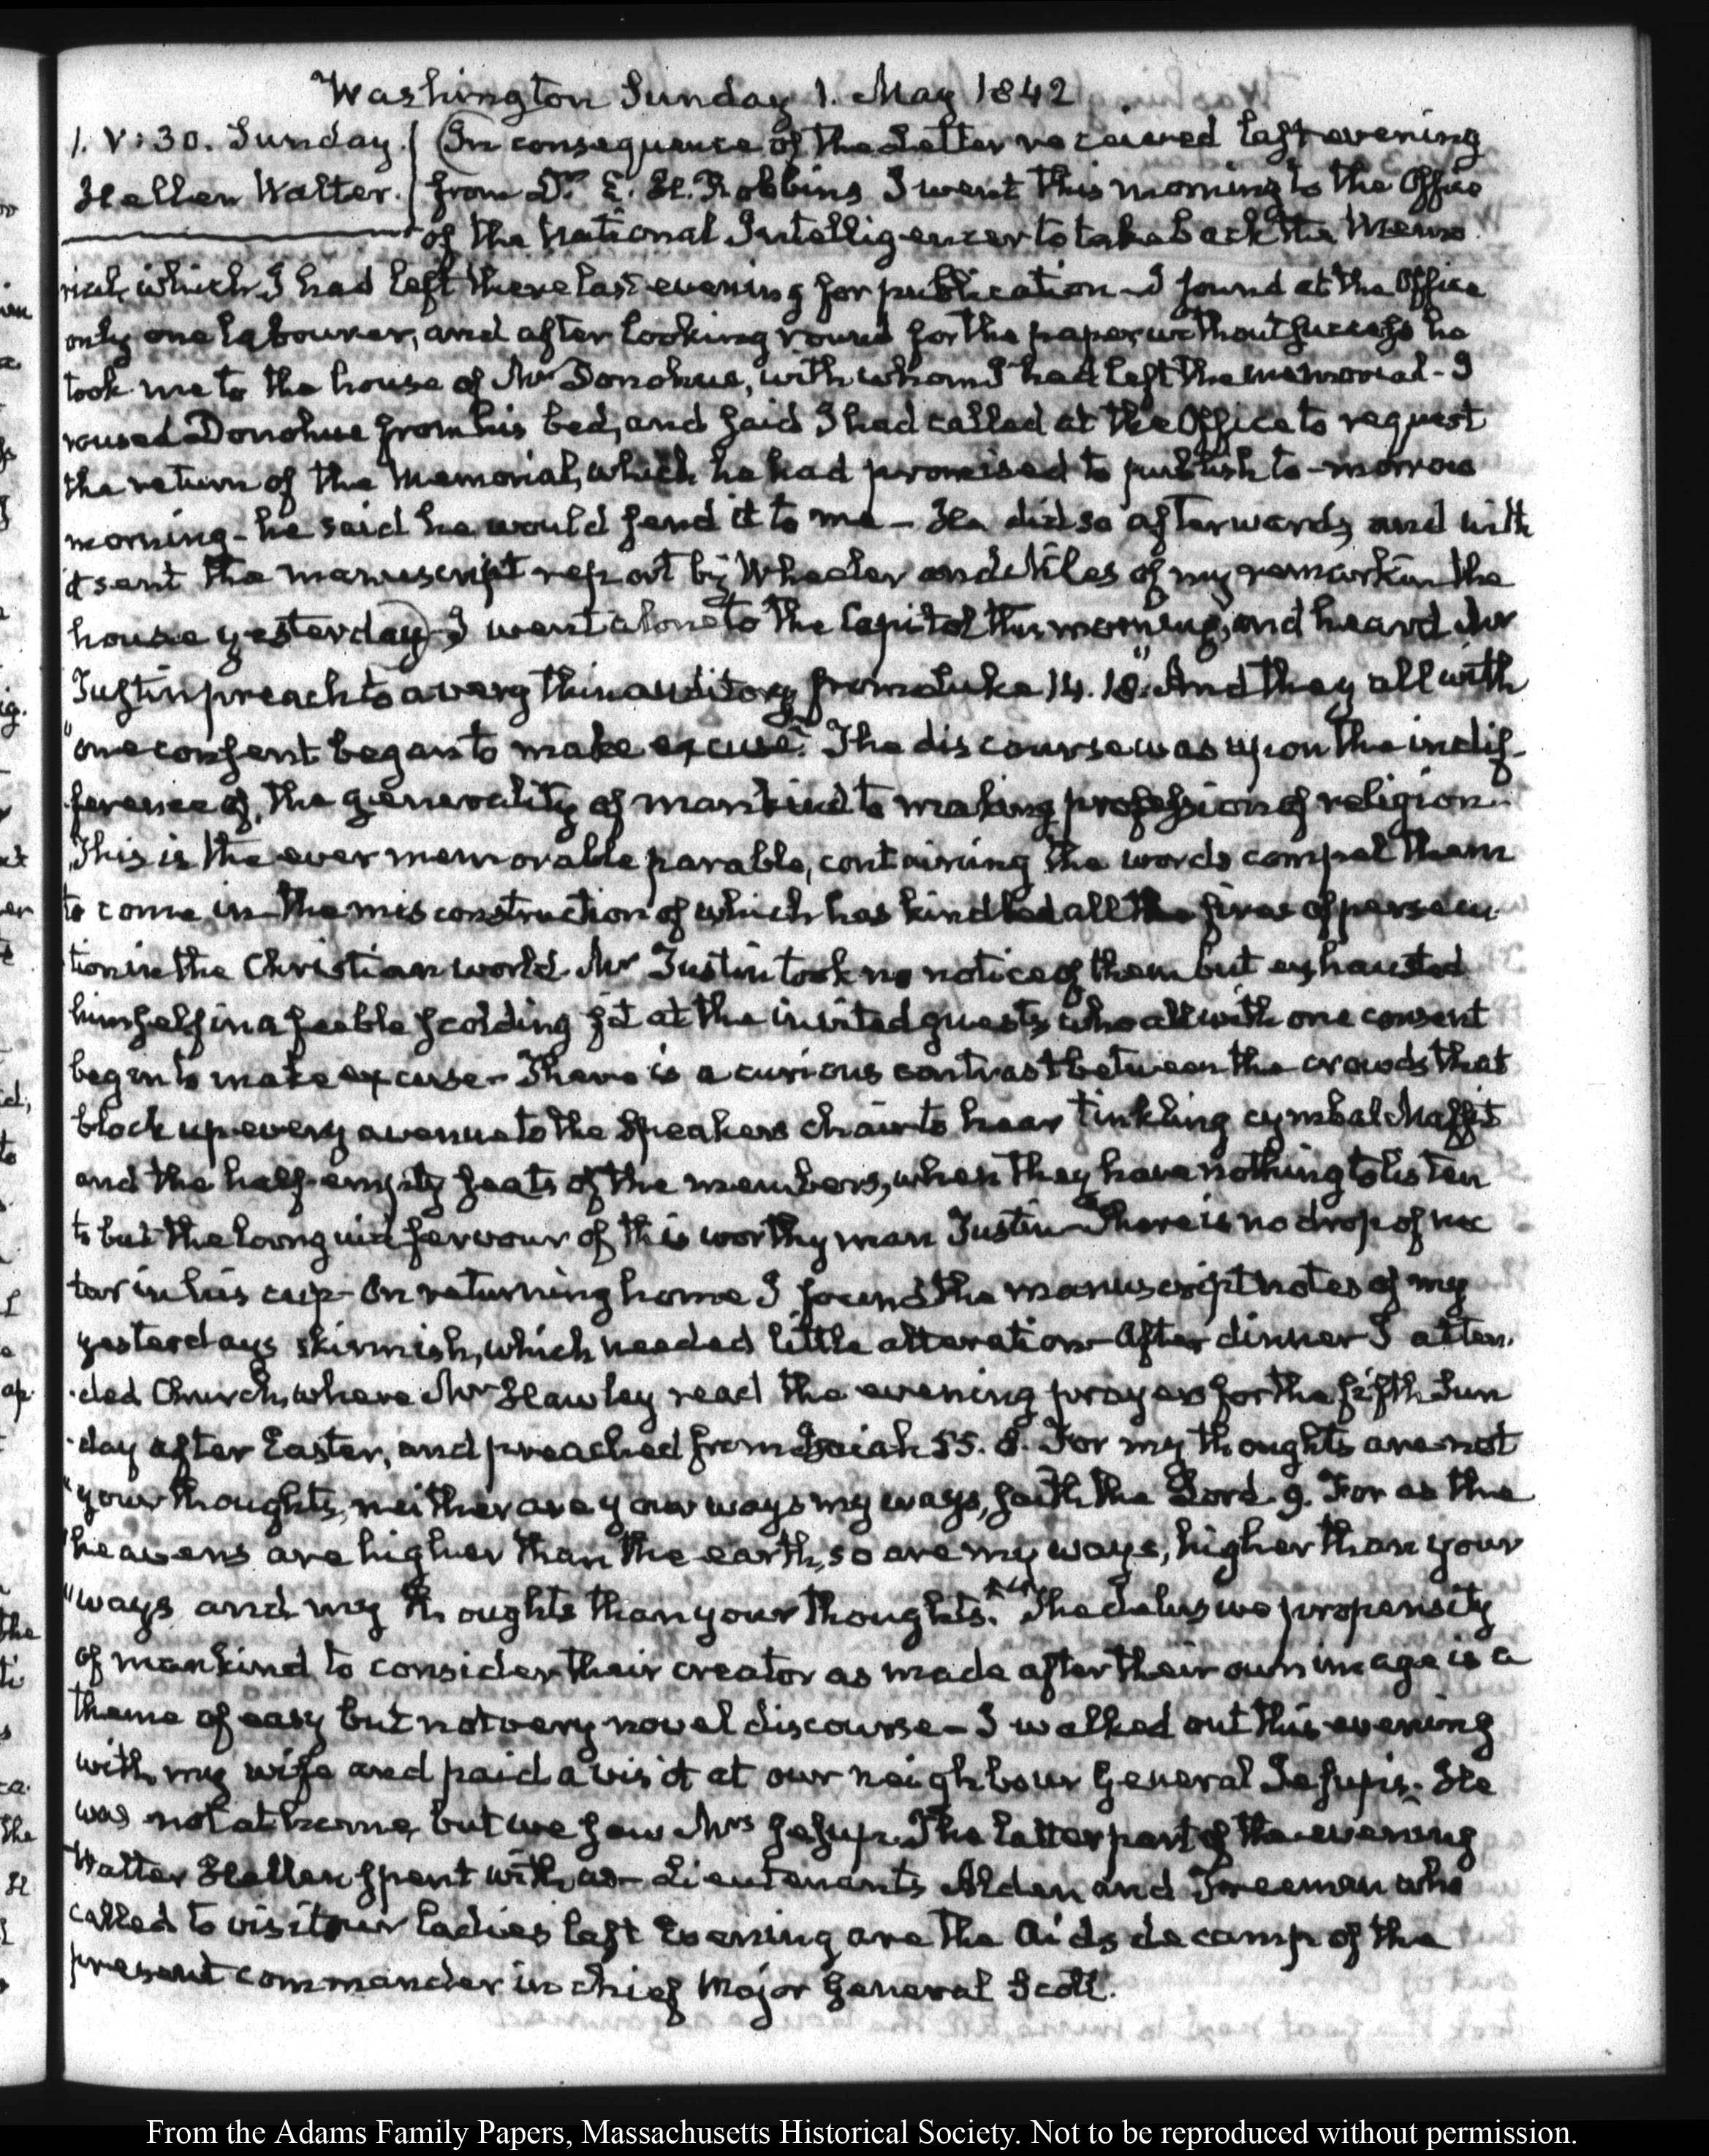 Washington Sunday 1. May 1842
1. V:30. Sunday.
Hellen Walter.
In consequence of the Letter received last evening
from Dr. E. H. Robbins I went this morning to the Office
of the National Intelligencer to take back the Memo
rial, which I had left there last evening for publication - I found at the Office
only one labourer, and after looking round for the paper without success he
took me to the house of Mr Donohue, with whom I had left the memorial - I
roused Donohue from his bed, and said I had called at the Office to request
the return of the Memorial, which he had promised to publish to-morrow
morning - he said he would send it to me - He did so afterwards, and with
it sent the manuscript report by Wheeler and Niles of my remarks in the
house yesterday) I went alone to the Capitol this morning, and heard Mr
Tustin preach to a very thin auditory from Luke 14. 18. "And they all with
"one consent began to make excuse." The discourse was upon the indif-
ference of, the generality of mankind to making profession of religion.
This is the ever memorable parable, containing the words compel them
to come in - the misconstruction of which has kindled all the fires of persecu-
tion in the Christian world. Mr Tustin took no notice of them but exhausted
himself in a feeble scolding fit at the invited guests, who all with one consent
began to make excuse - There is a curious contrast between the crowds that
block up every avenue to the Speakers chair to hear tinkling cymbal Maffit
and the half-empty seats of the members, when they have nothing to listen
to but the languid fervour of this worthy man Tustin - There is no drop of nec
tar in his cup - On returning home I found the manuscript notes of my
yesterdays skirmish, which needed little alteration - After dinner I atten
-ded Church, where Mr Hawley read the evening prayers for the fifth Sun
-day after Easter, and preached from Isaiah 55. 8. For my thoughts are not
"your thoughts, neither are your ways my ways, saith the Lord. 9. For as the
"heavens are higher than the earth, so are my ways, higher than your
"ways and my thoughts than your thoughts." The delusive propensity
of mankind to consider their creator as made after their own image is a
theme of easy but not very novel discourse - I walked out this evening
with my wife and paid a visit at our neighbour General Jesup's. He
was not at home, but we saw Mrs Jesup. The latter part of the evening
Walter Hellen spent with us - Lieutenants Alden and Freeman who
called to visit our ladies last Evening are the Aids de camp of the
present commander in chief Major General Scott.
From the Adams Family Papers, Massachusetts Historical Society. Not to be reproduced without permission.